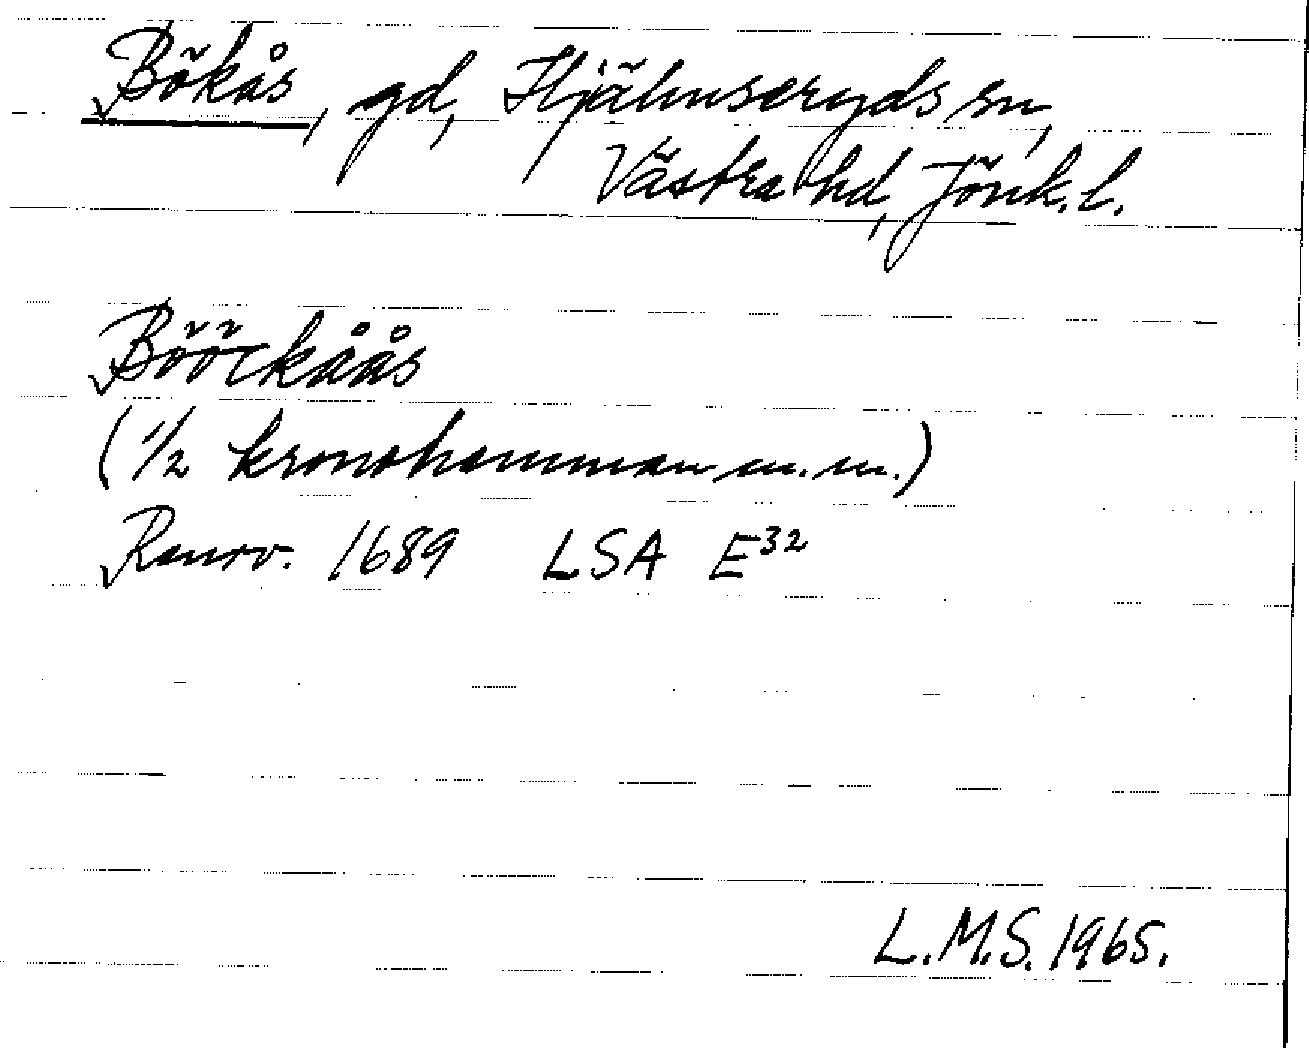 Bökås, gd, Hjälmseryds sn,
Västra hd, Jönk. l.
Bööckåås
(1/2 kronohemman m.m.)
Ransv. 1689 LSA E32
L.M.S. 1965.